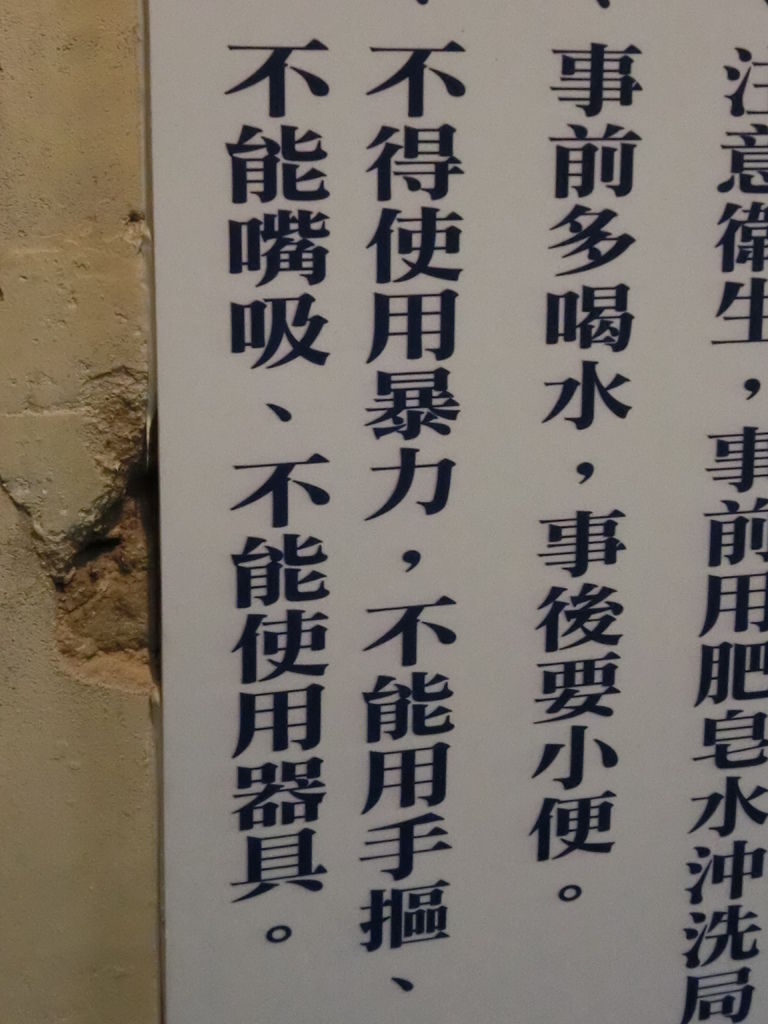 注意衛生，事前用肥皂水沖洗局
、事前多喝水，事後要小便。
、不得使用暴力，不能用手摳、
不能嘴吸、不能使用器具。